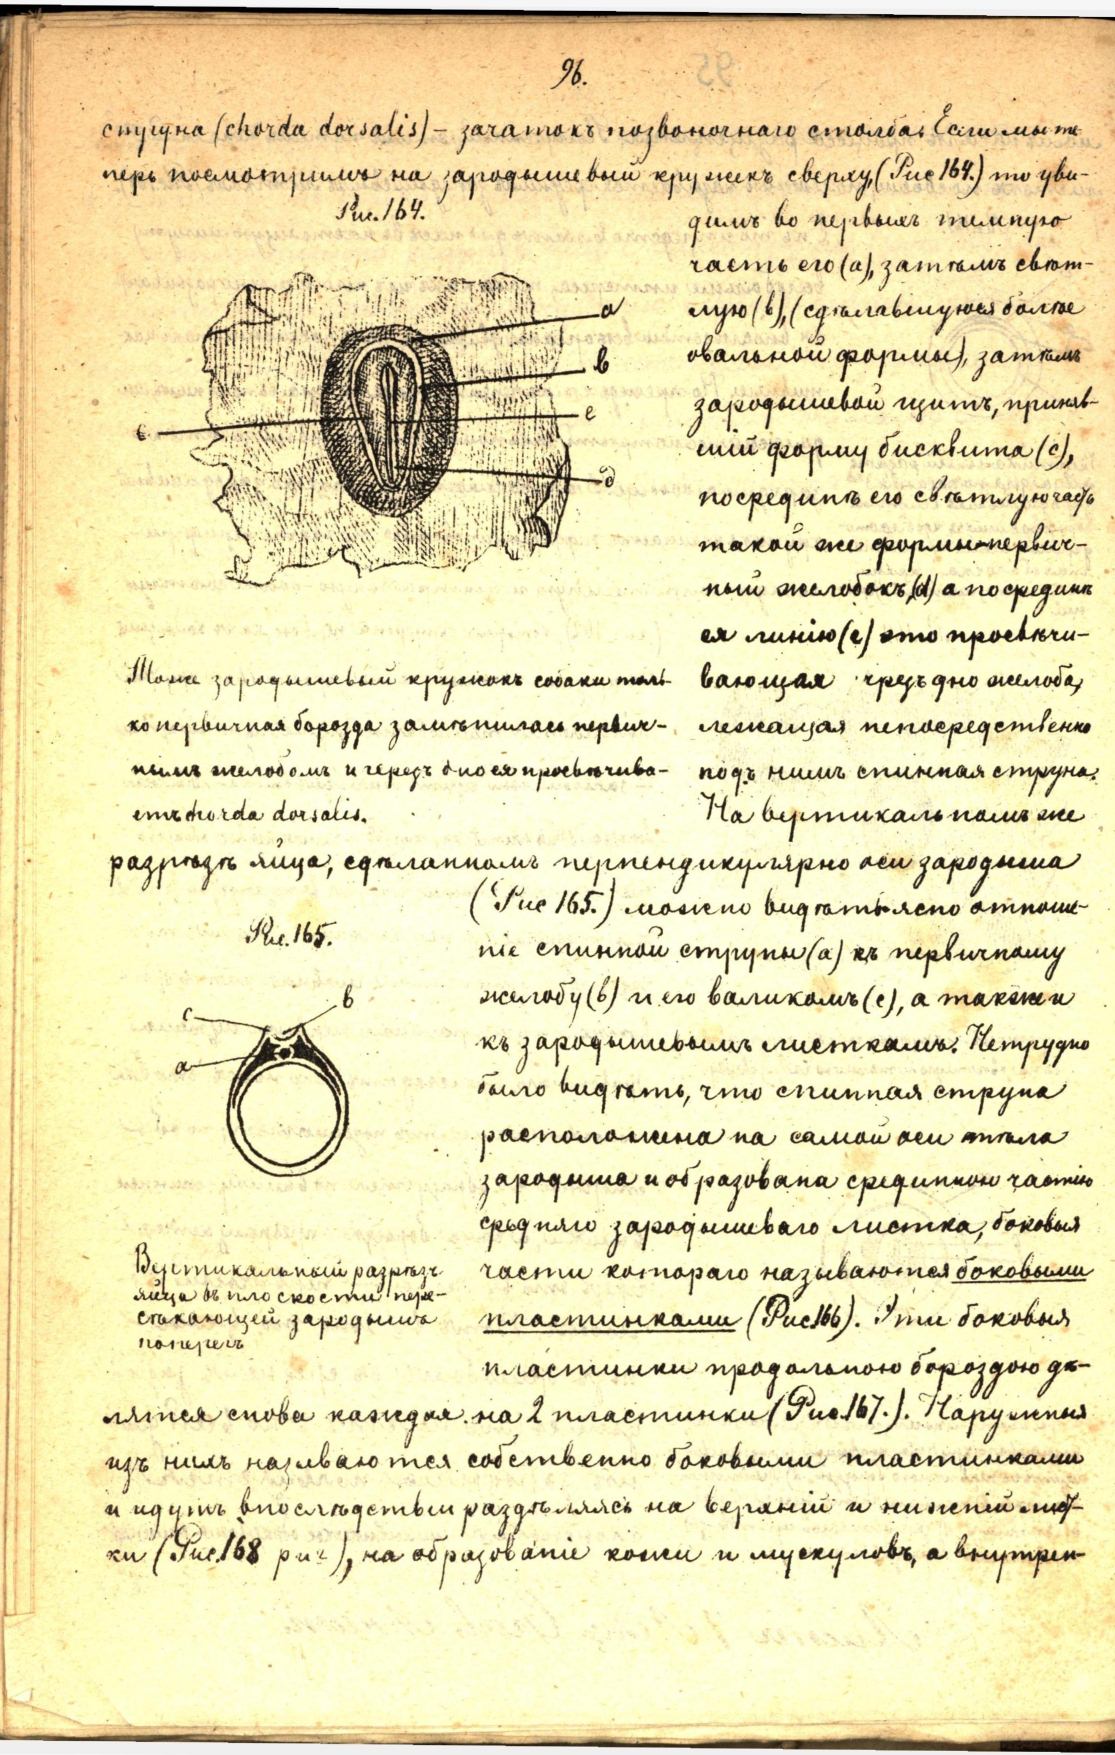 96.
струна (chorda dorsalis) – зачатокъ позвоночнаго столба. Если мы те
перь посмотримъ на зародышевый кружекъ сверху, (Рис 164.) то уви-
Рис. 164.
димъ во первыхъ темную
часть его (а), затѣмъ свѣт-
лую (b), (сдѣлавшуюся болѣе
овальной формы), затѣмъ
зародышевой щитъ, приняв-
шій форму бисквита (с),
посрединѣ его свѣтлую часть
такой же формы – первич-
ный желобокъ, (d) а посрединѣ
ея линію (е) это просвѣчи-
вающая чрезъ дно желоба,
лежащая непосредственно
подъ нимъ спинная струна.
На вертикальномъ же
a
b
e
c
d
Тоже зародышевый кружокъ собаки толь-
ко первичная борозда замѣнилась первич-
нымъ желобомъ и черезъ дно ея просвѣчива-
етъ chorda dorsalis.
разрѣзѣ яйца, сдѣланномъ перпендикулярно оси зародыша
(Рис 165.) можно видѣть ясно отноше-
ніе спинной струны (а) къ первичному
желобу (b) и его валикомъ (с), а также и
къ зародышевымъ листкамъ. Нетрудно
было видѣть, что спинная струна
расположена на самой оси тѣла
зародыша и образована срединною частію
средняго зародышеваго листка, боковыя
части котораго называются боковыми
пластинками (Рис. 166). Эти боковыя
пластинки продольною бороздою дѣ-
Рис. 165.
c
b
a
Вертикальный разрѣзъ
яйца въ плоскости пере-
сѣкающей зародышъ
поперегъ
лятся снова каждая на 2 пластинки (Рис. 167.). Наружныя
изъ нихъ называются собственно боковыми пластинками
и идутъ впослѣдствіи раздѣляясь на верхній и нижній лист-
ки (Рис. 168 ), на образованіе кожи и мускуловъ, а внутрен-